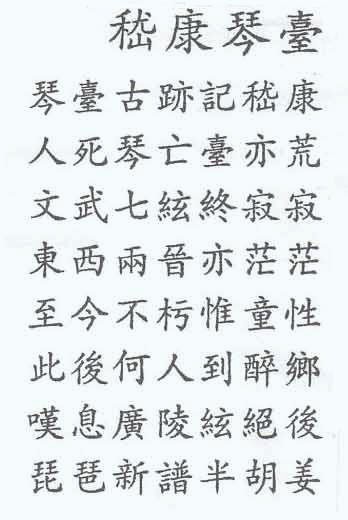 嵇康琴臺
琴臺古跡記嵇康
人死琴亡臺亦荒
文武七絃終寂寂
東西兩晉亦茫茫
至今不朽惟童性
此後何人到醉鄉
嘆息廣陵絃絕後
琵琶新譜半胡姜